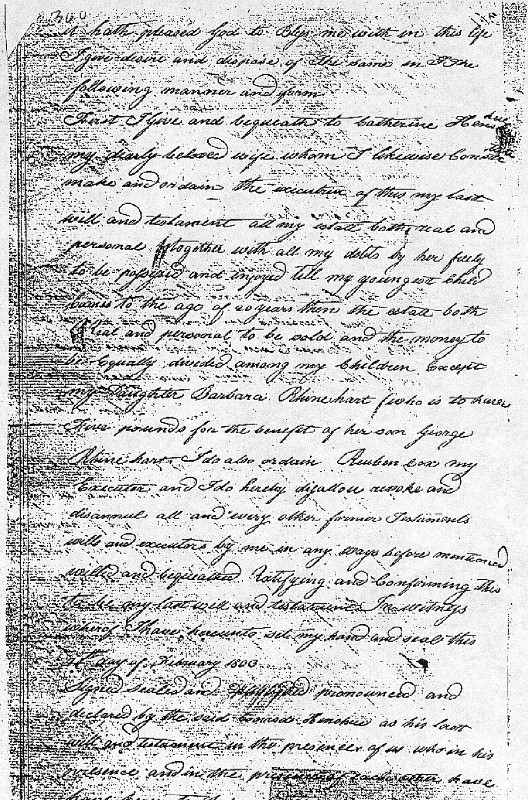 300
it hath pleased God to Bless me with in this life
I give devise and dispose of the same in the
following manner and form
First I give and bequeath to Catherine
my dearly beloved wife whom I likewise
make and ordain the executrix of this my last
will and testament all my estate both real and
personal together with all my debts by her freely
to be possessed and injoyed till my youngest Child
comes to the age of 20 years then the estate both
Real and personal to be sold and the money to
be Equally divided among my Children Except
my Daughter Barbara Rhinehart (who is to have
Five pounds for the benefit of her son George
Rhinehart I do also ordain Reuben Cox my
Executor and I do hereby disallow revoke and
disannul all and every other former Testaments
wills and executors by me in any ways before mentioned
willed and bequeathed Ratifying and Conforming this
to be my last will and testament In witness
whereof I have hereunto set my hand and seal this
day of February 1803
Signed sealed and pronounced and
declared by the said as his last
will and testament in the presence of us who in his
presence and in the presence of each other have